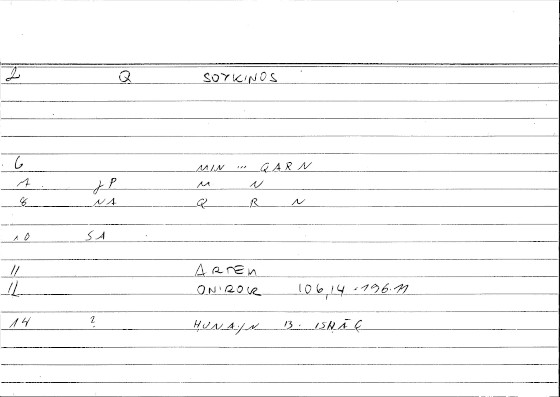 2 Q SOYKINOS
6 MIN ... QARN
7. JP M N
8 NA Q R N
10 SA
11 ARTEM
12 ONIROK 106,14-196.11
14 ? HUNAYN B. ISHĀQ